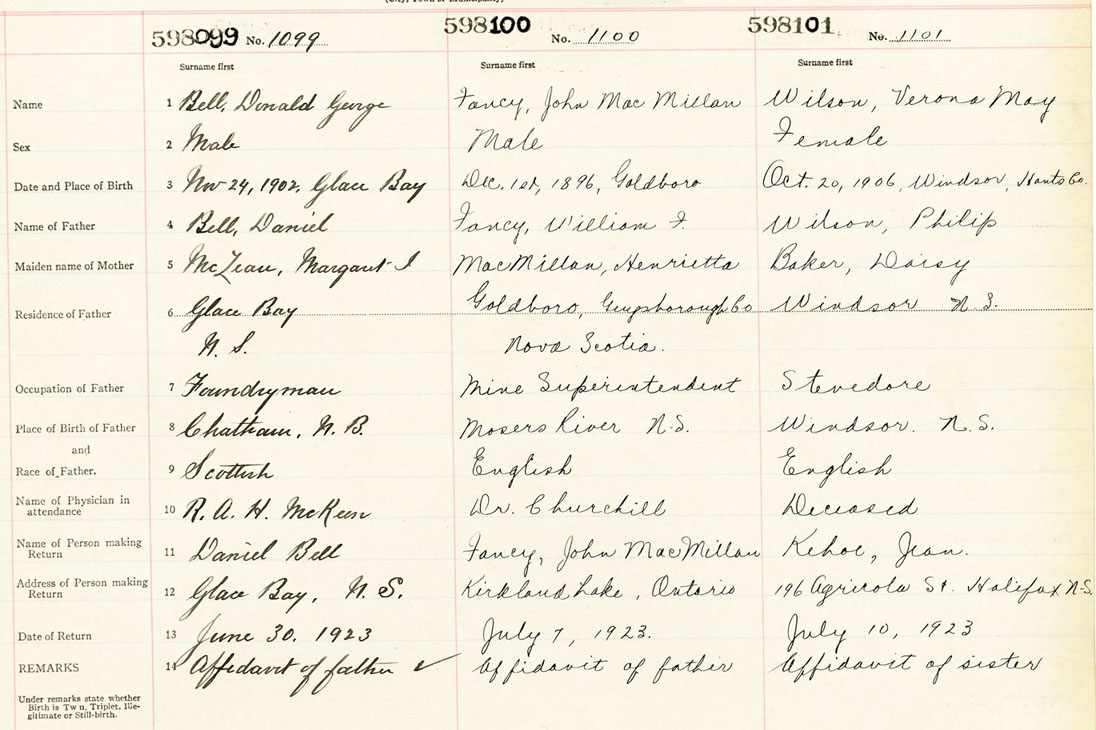 (City, Town or Municipality)
598099 No. 1099 598100 No. 1100 598101 No. 1101
Surname first Surname first Surname first
Name 1 Bell, Donald George Fancy, John Mac Millan Wilson, Verona May
Sex 2 Male Male Female
Date and Place of Birth 3 Nov 24, 1902, Glace Bay Dec. 1st, 1896, Goldboro Oct. 20, 1906, Windsor, Hants Co.
Name of Father 4 Bell, Daniel Fancy, William F. Wilson, Philip
Maiden name of Mother 5 McLean, Margaret I MacMillan, Henrietta Baker, Daisy
Residence of Father 6 Glace Bay Goldboro, Guysborough Co Windsor N.S.
N. S. Nova Scotia.
Occupation of Father 7 Foundryman Mine Superintendent Stevedore
Place of Birth of Father 8 Chatham, N. B. Mosers River N.S. Windsor. N.S.
and
Race of Father. 9 Scottish English English
Name of Physician in
attendance 10 R. A. H. McKeen Dr. Churchill Deceased
Name of Person making
Return 11 Daniel Bell Fancy, John MacMillan Kehoe, Jean.
Address of Person making
Return 12 Glace Bay, N. S. Kirkland Lake, Ontario 196 Agricola St. Halifax N.S.
Date of Return 13 June 30. 1923 July 7, 1923. July 10, 1923
REMARKS 14 Affidavit of father ✓ Affidavit of father Affidavit of sister
Under remarks state whether
Birth is Twn, Triplet, Ille-
gitimate or Still-birth.